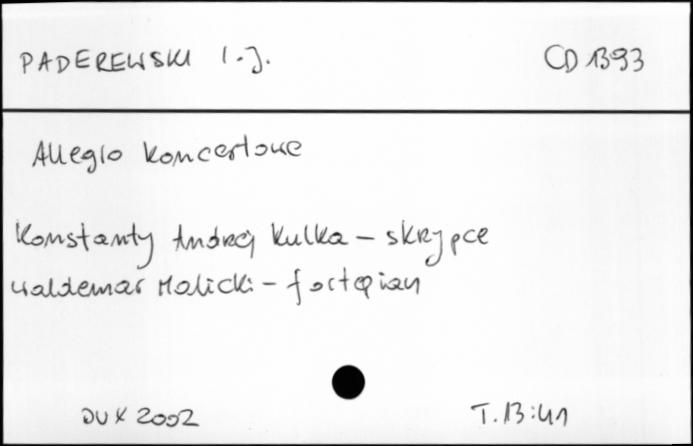 PADEREWSKI I.J. CD 1393
Allegro koncertowe
Konstanty Andrzej Kulka - skrzypce
Waldemar Malicki - fortepian
DUX 2002 T. 13:41